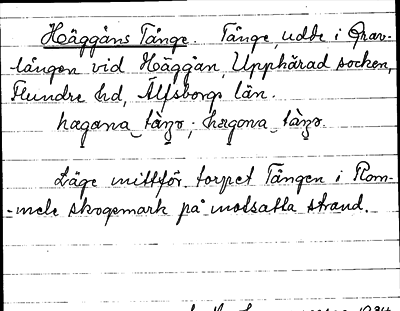 Häggåns Tånge. Tånge, udde i Grav-
långon vid Häggån, Upphärad socken,
Flundre hd, Älfsborgs län.
Läge mittför torpet Tången i Rom-
-mele skogsmark på motsatta strand.